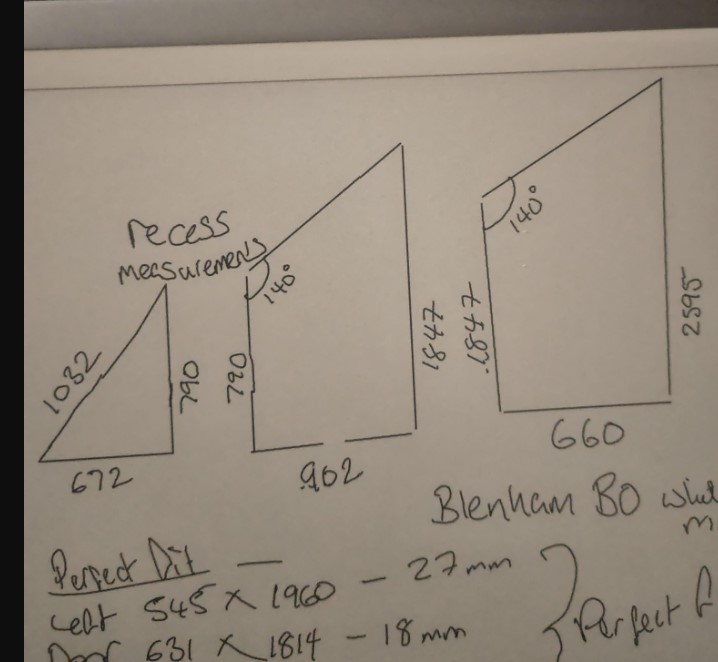 recess
measurements
1032
790
672
140°
790
1847
902
140°
1847
2595
660
Blenham BO
Perfect Fit —
Left 545 x 1960 - 27mm
Door 631 x 1814 - 18mm
Perfect